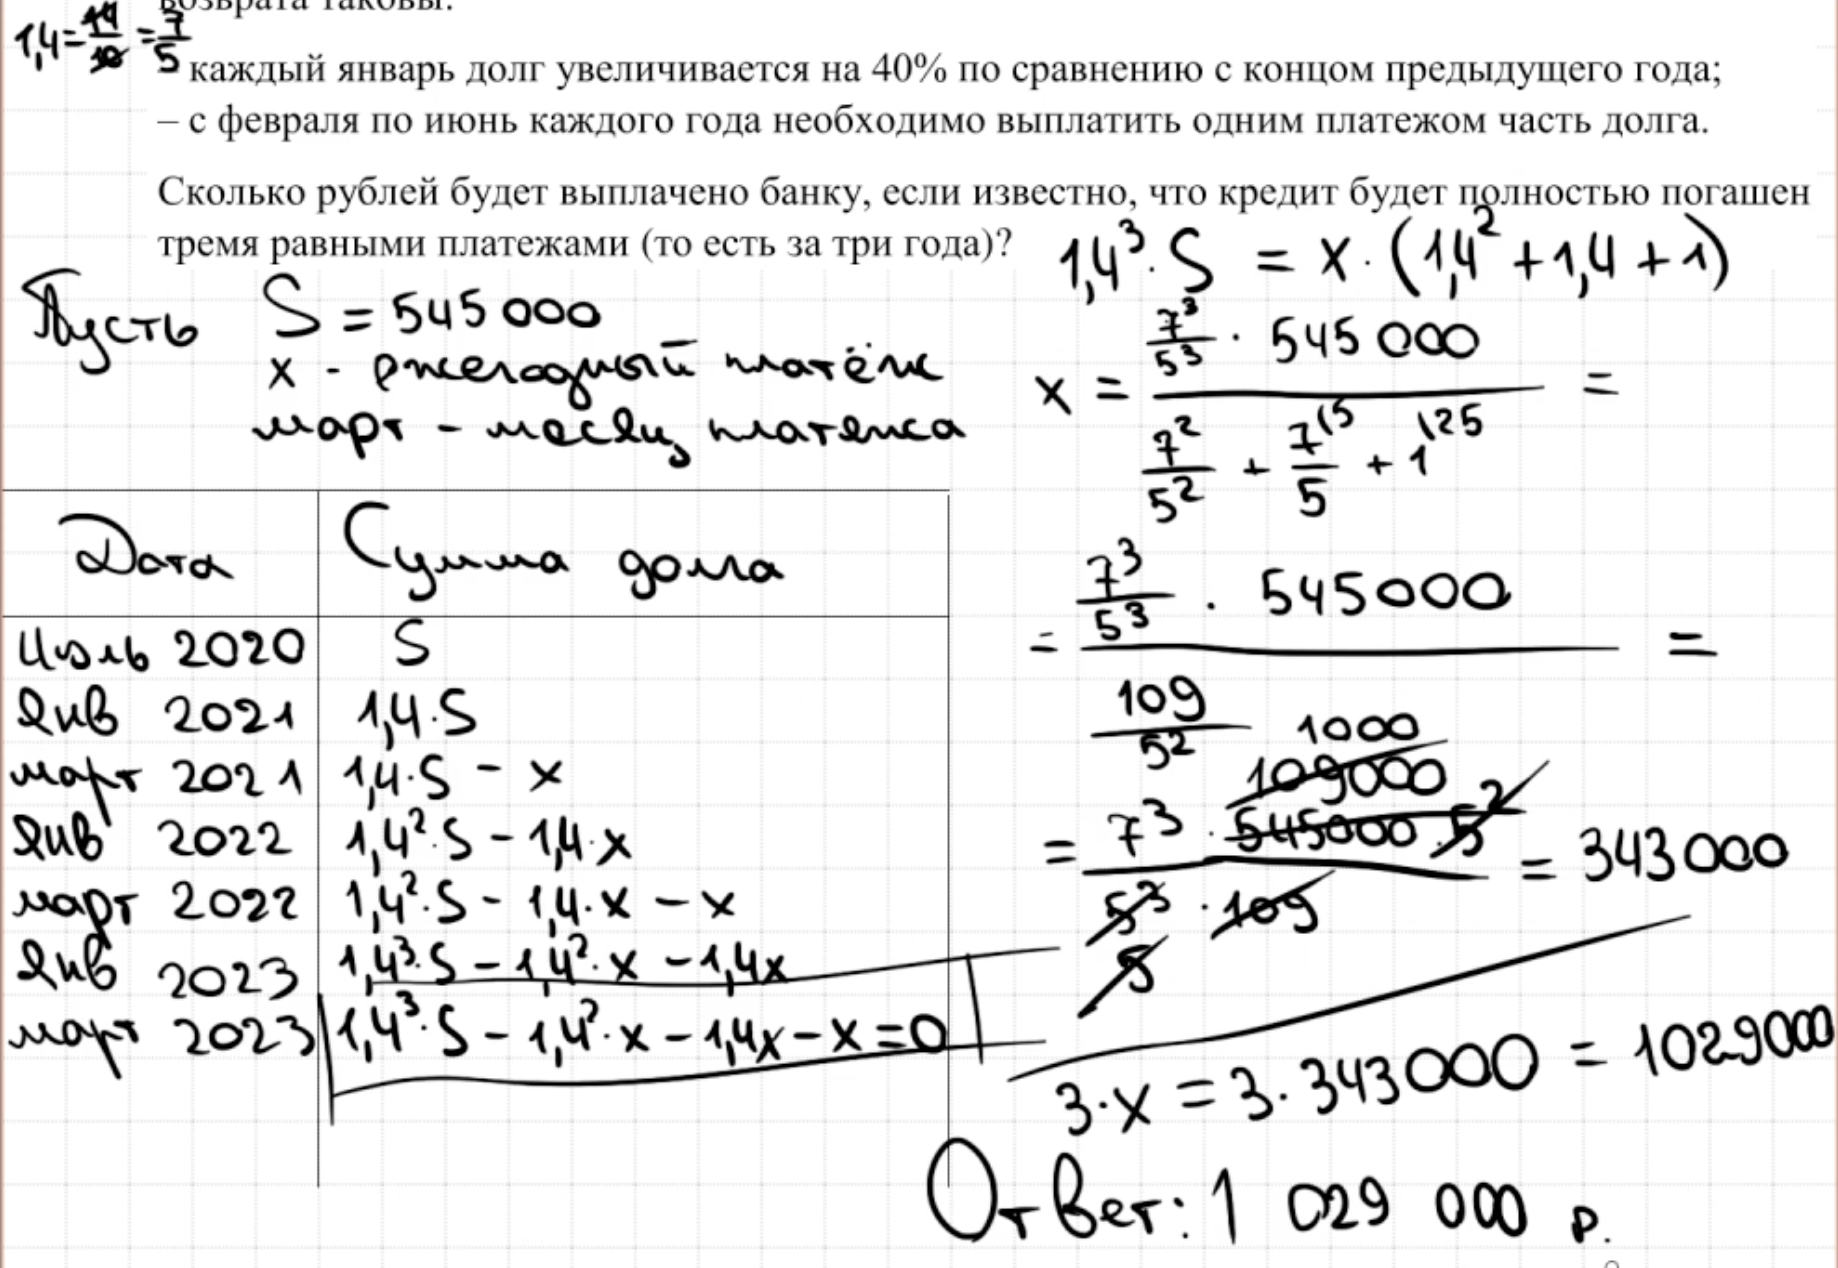 возврата таковы:
1,4 = 14/10 = 7/5
каждый январь долг увеличивается на 40% по сравнению с концом предыдущего года;
– с февраля по июнь каждого года необходимо выплатить одним платежом часть долга.
Сколько рублей будет выплачено банку, если известно, что кредит будет полностью погашен
тремя равными платежами (то есть за три года)?
Пусть S = 545 000
x - ежегодный платёж
март - месяц платежа
Дата Сумма долга
Июль 2020 S
Янв 2021 1,4·S
март 2021 1,4·S - x
Янв 2022 1,4²·S - 1,4·x
март 2022 1,4²·S - 1,4·x - x
Янв 2023 1,4³·S - 1,4²·x - 1,4x
март 2023 1,4³·S - 1,4²·x - 1,4x - x = 0
1,4³·S = x·(1,4² + 1,4 + 1)
7³/5³ · 545 000
x = =
7²/5² + 7/5 ⁽⁵ + 1 ⁽²⁵
7³/5³ · 545000
= =
109/5²
1000
109000
= 7³ · 545000 · 5² = 343 000
5³ · 109
5
3·x = 3·343000 = 1029000
Ответ: 1 029 000 р.